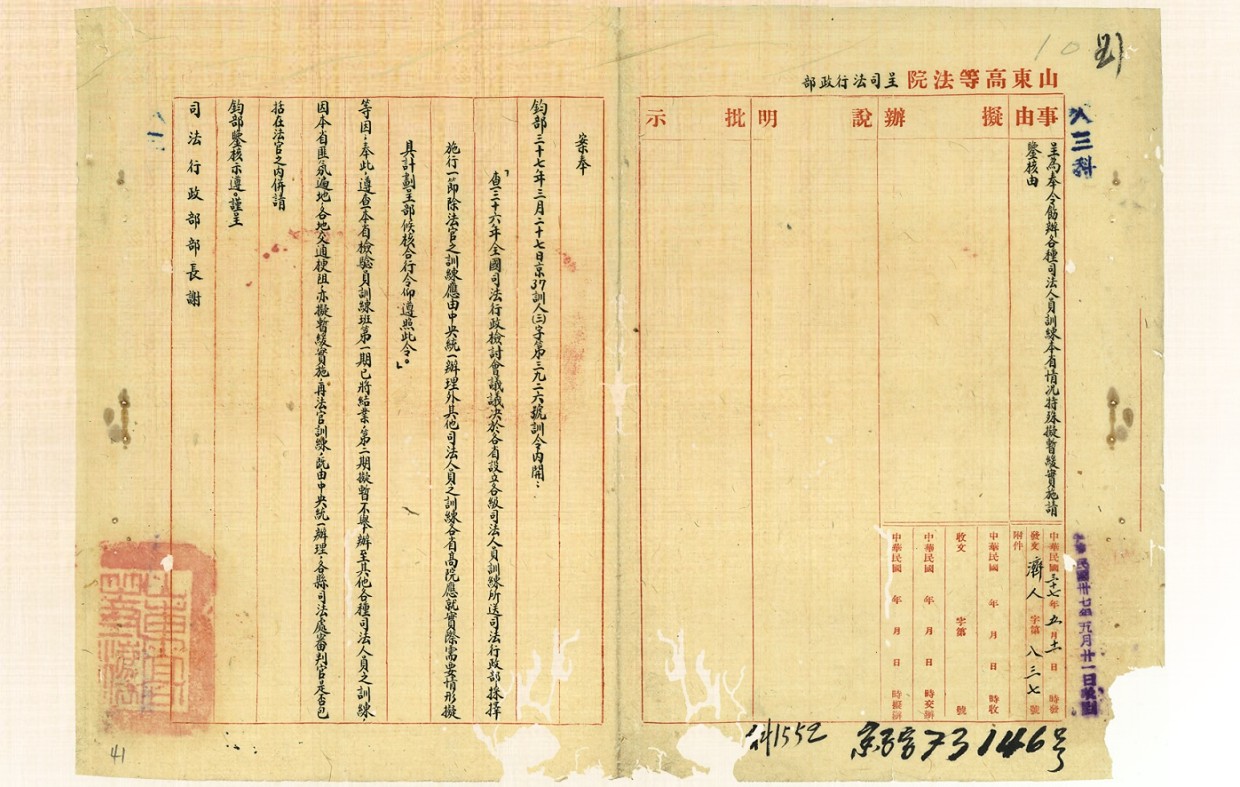 山東高等法院呈司法行政部
事由
擬辦
說明
批示
呈為奉令飭辦各種司法人員訓練本省情況特殊擬暫緩實施請
鑒核由
中華民國三十七年五月十一日時發
發文濟人字第八三七號
附件
中華民國 年 月 日 時收
收文 字第 號
中華民國 年 月 日 時交辦
中華民國 年 月 日 時擬辦
人三科
民國卅七年五月廿一日
10
科1552
73146号
案奉
鈞部三十七年三月二十七日京37訓人(三)字第三九二六號訓令內開：
「查三十六年全國司法行政檢討會議議決於各省設立各級司法人員訓練所送司法行政部採擇
施行一節除法官之訓練應由中央統一辦理外其他司法人員之訓練各省高院應就實際需要情形擬
具計劃呈部候核合行令仰遵照此令。」
等因。奉此，遵查本省檢驗員訓練班第一期已將結業，第二期擬暫不舉辦至其他各種司法人員之訓練
因本省匪氛遍地，各地交通梗阻，亦擬暫緩實施，再法官訓練，既由中央統一辦理，各縣司法處審判官是否包
括在法官之內併請
鈞部鑒核示遵。謹呈
司法行政部部長謝
41